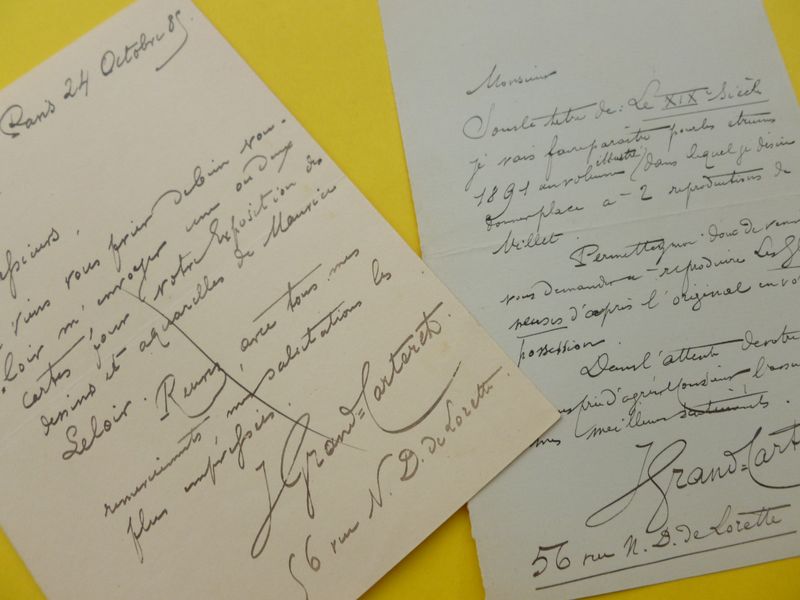 Paris 24 Octobre 85
Messieurs,
viens vous prier de bien vou-
loir m'envoyer une ou deux
cartes pour votre Exposition de
dessins et aquarelles de Maurice
Leloir. Recevez avec tous mes
remerciements mes salutations les
plus empressées.
J Grand-Carteret
56 rue N. D. de Lorette
Monsieur
Sous le titre de: Le XIXe Siècle
je vais faire paraître pour les étrennes
1891 un volume illustré dans lequel je désire
donner place à 2 reproductions de
Millet.
Permettez-moi donc de venir
vous demander à reproduire Les Gl
neuses d'après l'original en vo
possession.
Dans l'attente de votre
prie d'agréer Monsieur l'assu
mes meilleurs sentiments.
J Grand-Cart
56 rue N. D. de Lorette